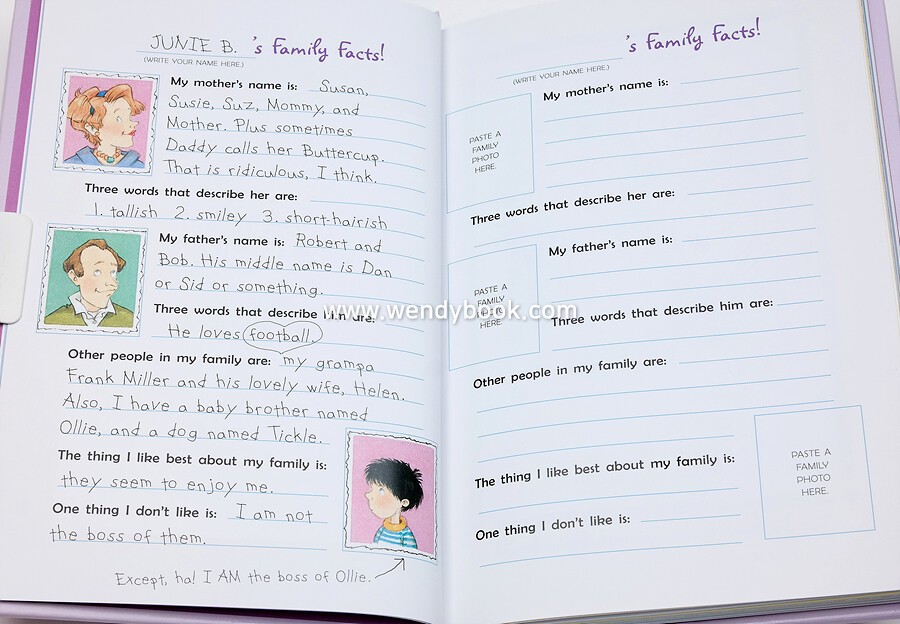 JUNIE B. 's Family Facts!
(WRITE YOUR NAME HERE.)
My mother's name is: Susan,
Susie, Suz, Mommy, and
Mother. Plus sometimes
Daddy calls her Buttercup.
That is ridiculous, I think.
Three words that describe her are:
1. tallish 2. smiley 3. short-hairish
My father's name is: Robert and
Bob. His middle name is Dan
or Sid or something.
Three words that describe him are:
He loves football.
Other people in my family are: my grampa
Frank Miller and his lovely wife, Helen.
Also, I have a baby brother named
Ollie, and a dog named Tickle.
The thing I like best about my family is:
they seem to enjoy me.
One thing I don't like is: I am not
the boss of them.
Except, ha! I AM the boss of Ollie.
's Family Facts!
(WRITE YOUR NAME HERE.)
My mother's name is:
PASTE A
FAMILY
PHOTO
HERE.
Three words that describe her are:
My father's name is:
PASTE A
FAMILY
PHOTO
HERE.
Three words that describe him are:
Other people in my family are:
PASTE A
FAMILY
PHOTO
HERE.
The thing I like best about my family is:
One thing I don't like is:
www.wendybook.com